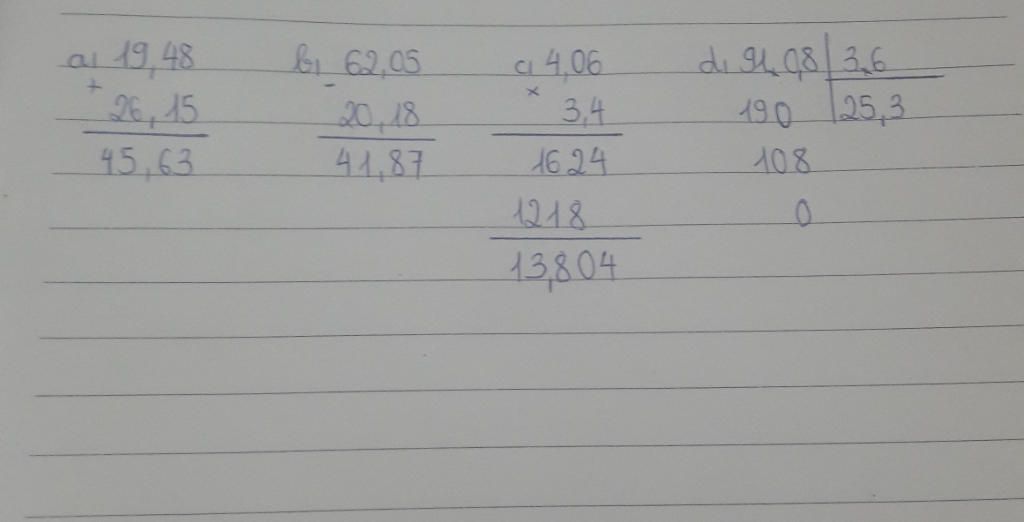 a, 19,48 b, 62,05 c, 4,06 d, 91,0,8 3,6
+ 26,15 - 20,18 × 3,4 190 25,3
45,63 41,87 1624 108
1218 0
13,804